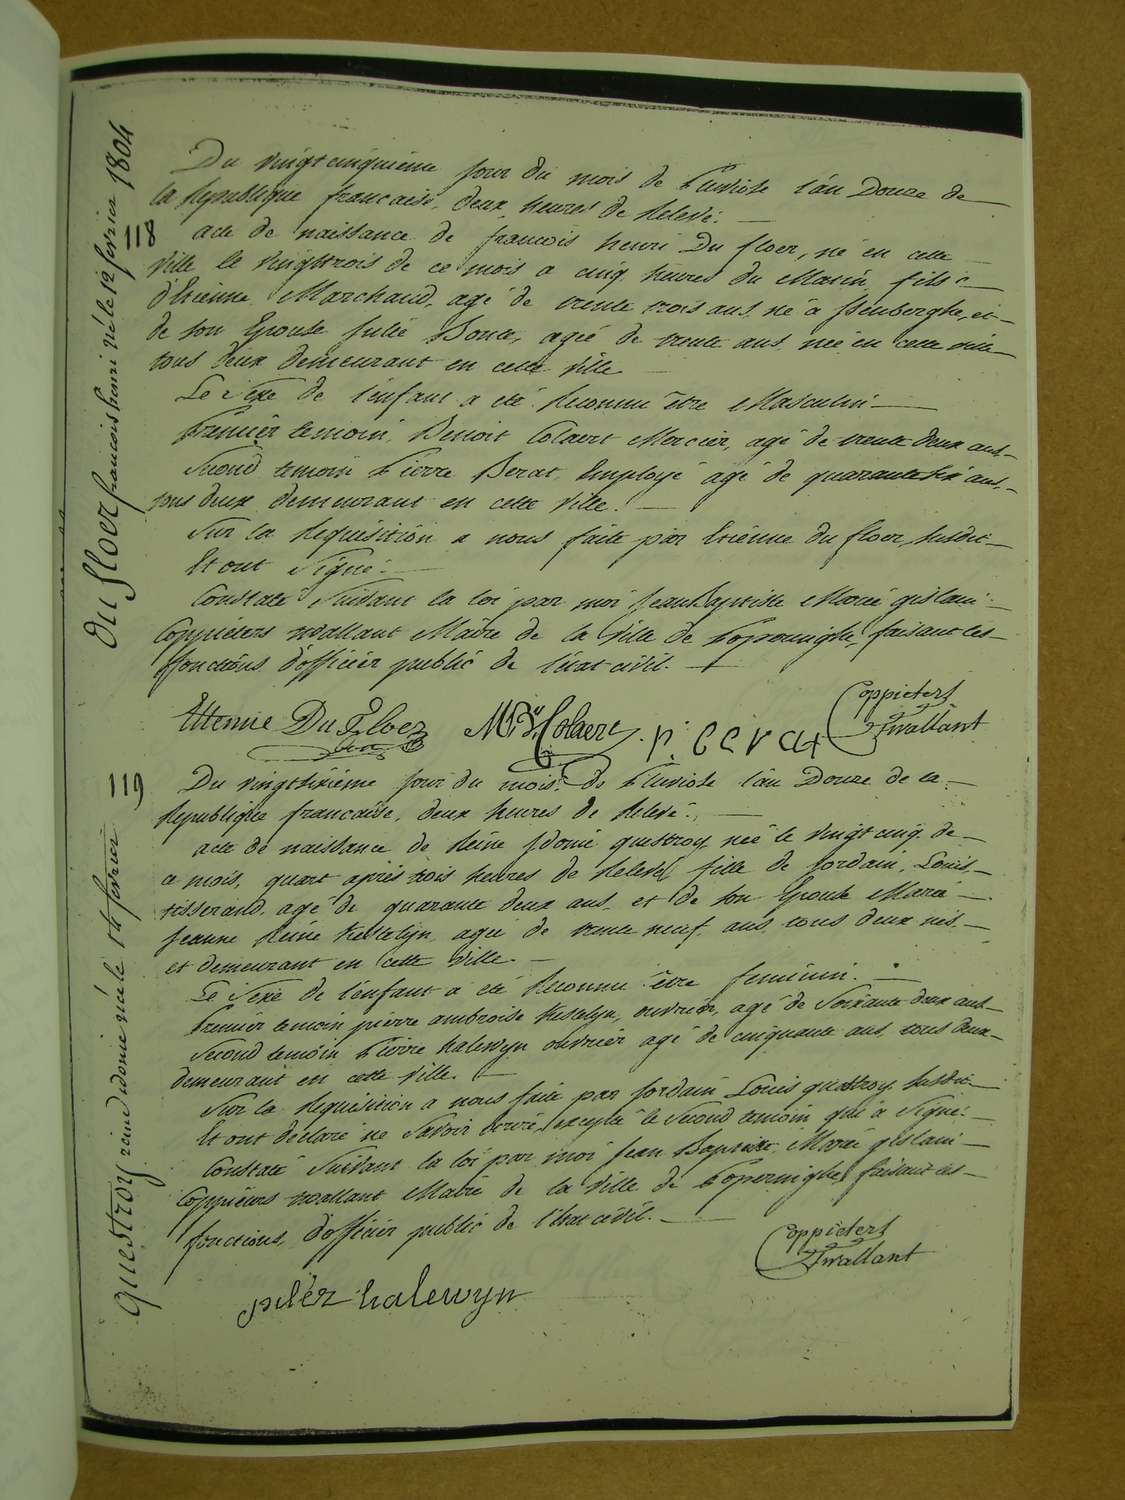 Du vingt cinquieme jour du mois de Pluviose l'an Douze de
la Republique francaise, deux heures de Relevé.
118
acte de naissance de francois henri Du floer, né en cette
ville le vingttrois de ce mois a cinq heures du Matin, fils
d'Etienne Marchand, agé de trente trois ans né à Isenberghe, et
de son Epouse Julie Bonte, agée de trente ans née en cette ville
tous deux demeurant en cette ville
Le Sexe de l'enfant a eté Reconnu être Masculin
Premier temoin, Benoit Colaert Mercier, agé de trente deux ans
Second temoin Pierre Berat, Employé agé de quarante six ans,
tous deux demeurant en cette ville.
Sur la Requisition a nous faite par Etienne du floer, susdit
Et ont Signé.
Constaté Suivant la loi par moi Jean Baptiste Marie gislain
Coppieters wallant Maire de la Ville de Poperinghe, faisant les
ffonctions d'officier public de l'état civil.
Ettenne Du Floer
Colaert
p: berat
Coppieters
Twallant
Du floer francois henri né le 12 fevrier 1804
119
Du vingtsixieme jour du mois de Pluviose l'an Douze de la
Republique francaise, deux heures de Relevé.
acte de naissance de Reine Idonie questroy née le vingt cinq de
ce mois, quart après trois heures de Relevé fille de Jordain, Louis,
tisserand, agé de quarante deux ans, et de son Epouse Marie
Jeanne Reine Kestelyn, agée de trente neuf ans tous deux nés
et demeurant en cette ville.
Le Sexe de l'enfant a eté Reconnu être feminin.
Premier temoin pierre ambroise Kestelyn, ouvrier, agé de Soixante deux ans
Second temoin Pierre halewyn ouvrier agé de cinquante ans, tous deux
demeurant en cette ville.
Sur la Requisition a nous faite par Jordain Louis questroy susdit
Et ont declaré ne Savoir Ecrire, excepté le Second temoin qui a Signé.
Constaté Suivant la loi par moi Jean Baptiste Marie gislain
Coppieters wallant Maire de la Ville de Poperinghe, faisant les
fonctions, d'officier public de l'état civil.
Coppieters
Twallant
pieer halewyn
questroy reine idonie née le 14 fevrier